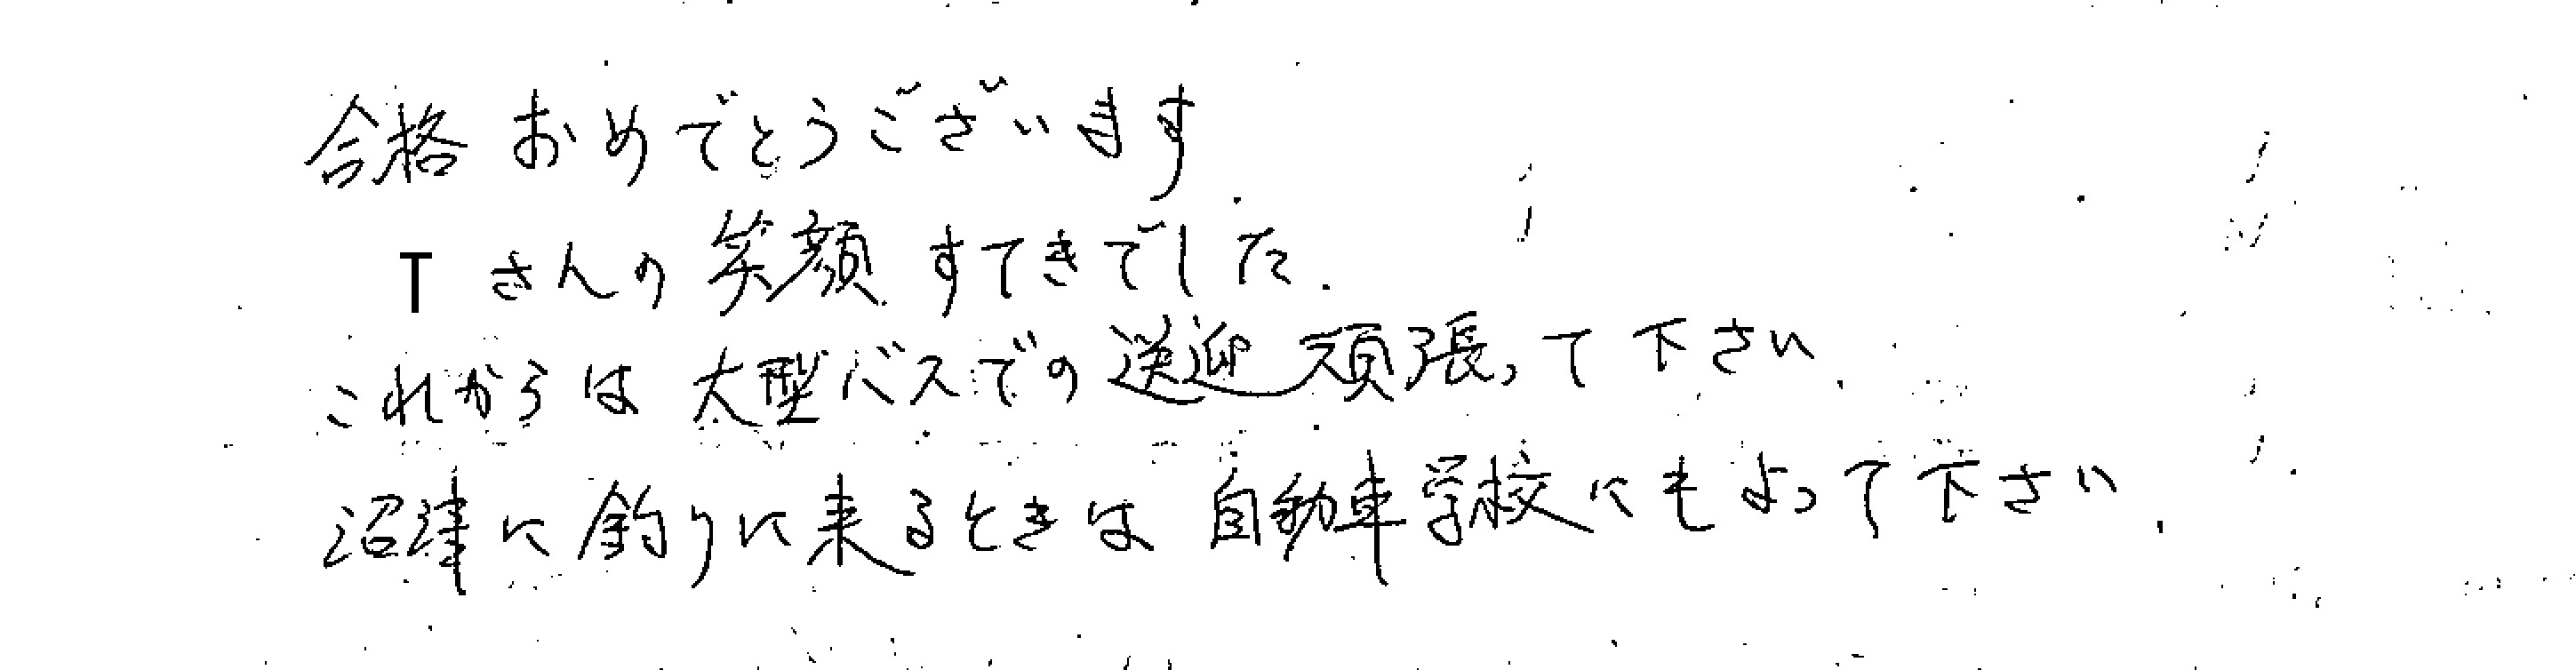 合格おめでとうございます.
Tさんの笑顔すてきでした.
これからは大型バスでの送迎頑張って下さい.
沼津に釣りに来るときは自動車学校にもよって下さい.